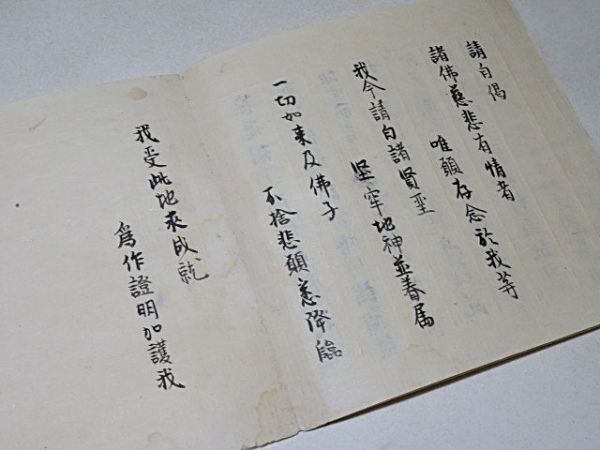 請白偈
諸佛慈悲有情者
唯願存念於我等
我今請白諸賢聖
堅牢地神並眷属
一切如来及佛子
不捨悲願悉降臨
我受此地来成就
為作證明加護我